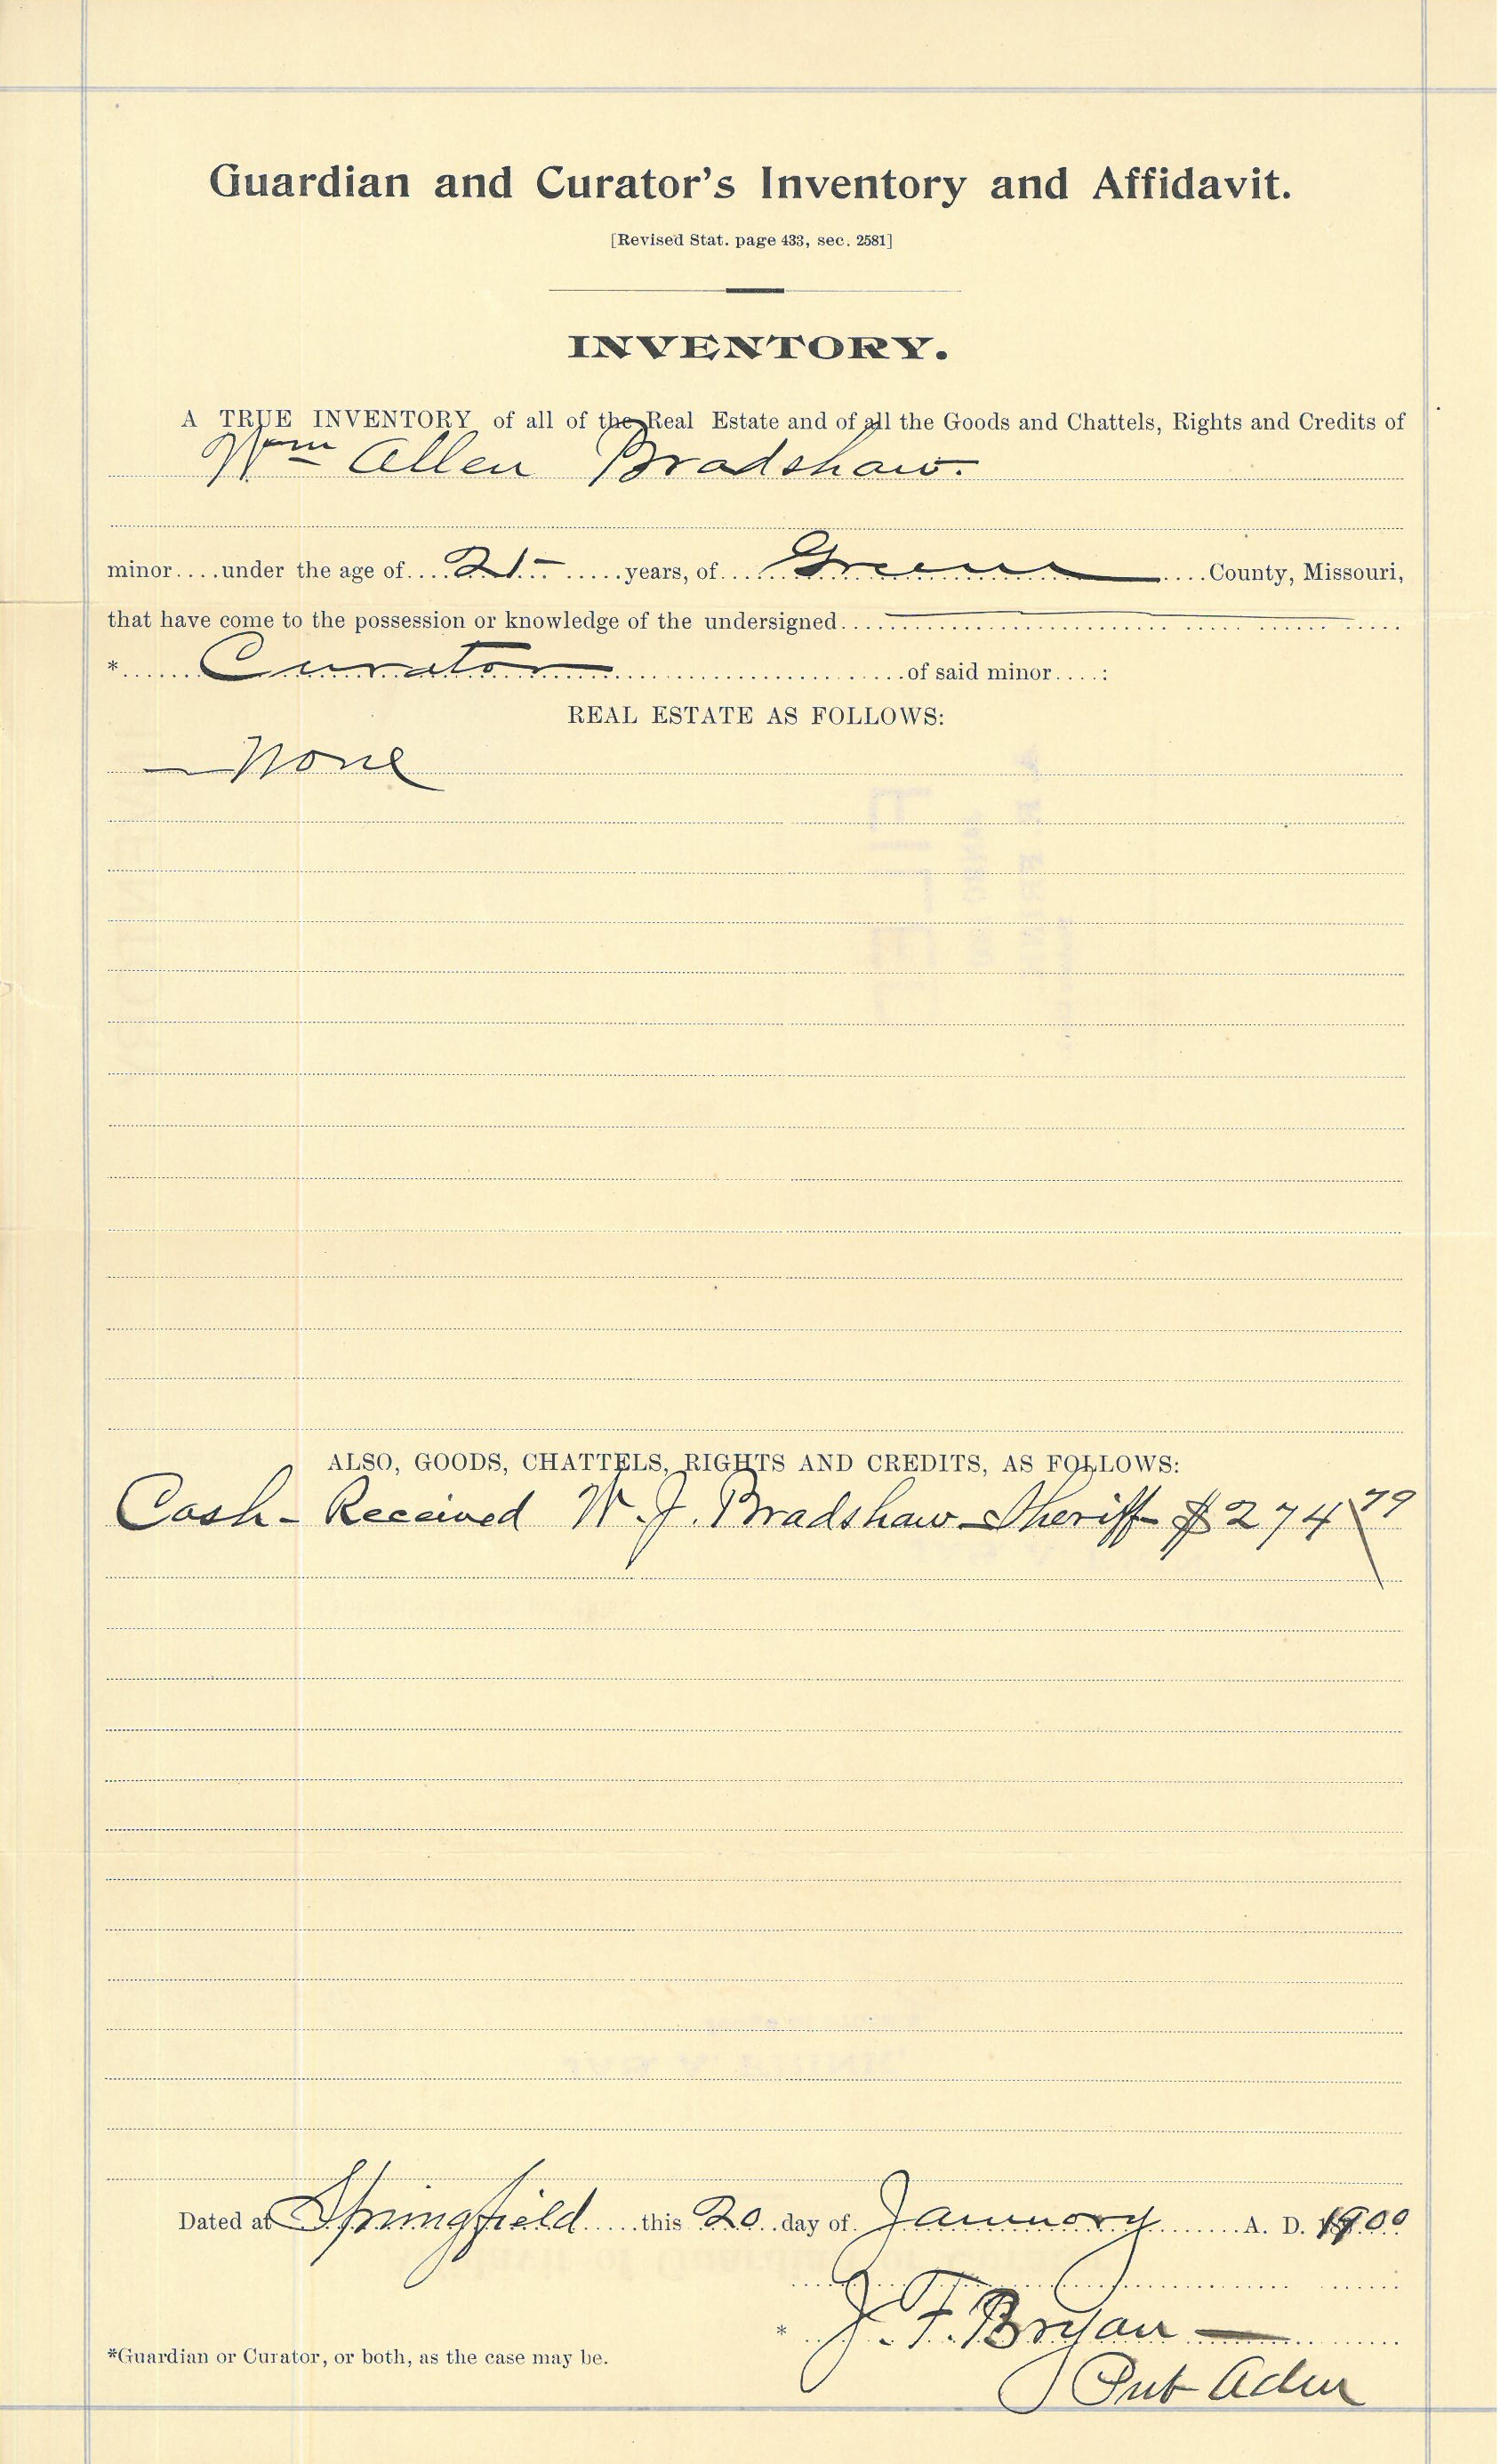 Guardian and Curator's Inventory and Affidavit.
[Revised Stat. page 433, sec. 2581]
INVENTORY.
A TRUE INVENTORY of all of the Real Estate and of all the Goods and Chattels, Rights and Credits of
Wm Allen Bradshaw.
minor....under the age of....21-......years, of....Greene....County, Missouri,
that have come to the possession or knowledge of the undersigned....
*......Curator......of said minor....:
REAL ESTATE AS FOLLOWS:
— None
ALSO, GOODS, CHATTELS, RIGHTS AND CREDITS, AS FOLLOWS:
Cash - Received W. J. Bradshaw - Sheriff - $274 79
Dated at Springfield.....this 20..day of January.......A. D. 1900
* J. F. Bryan —
*Guardian or Curator, or both, as the case may be.
Pub Admr